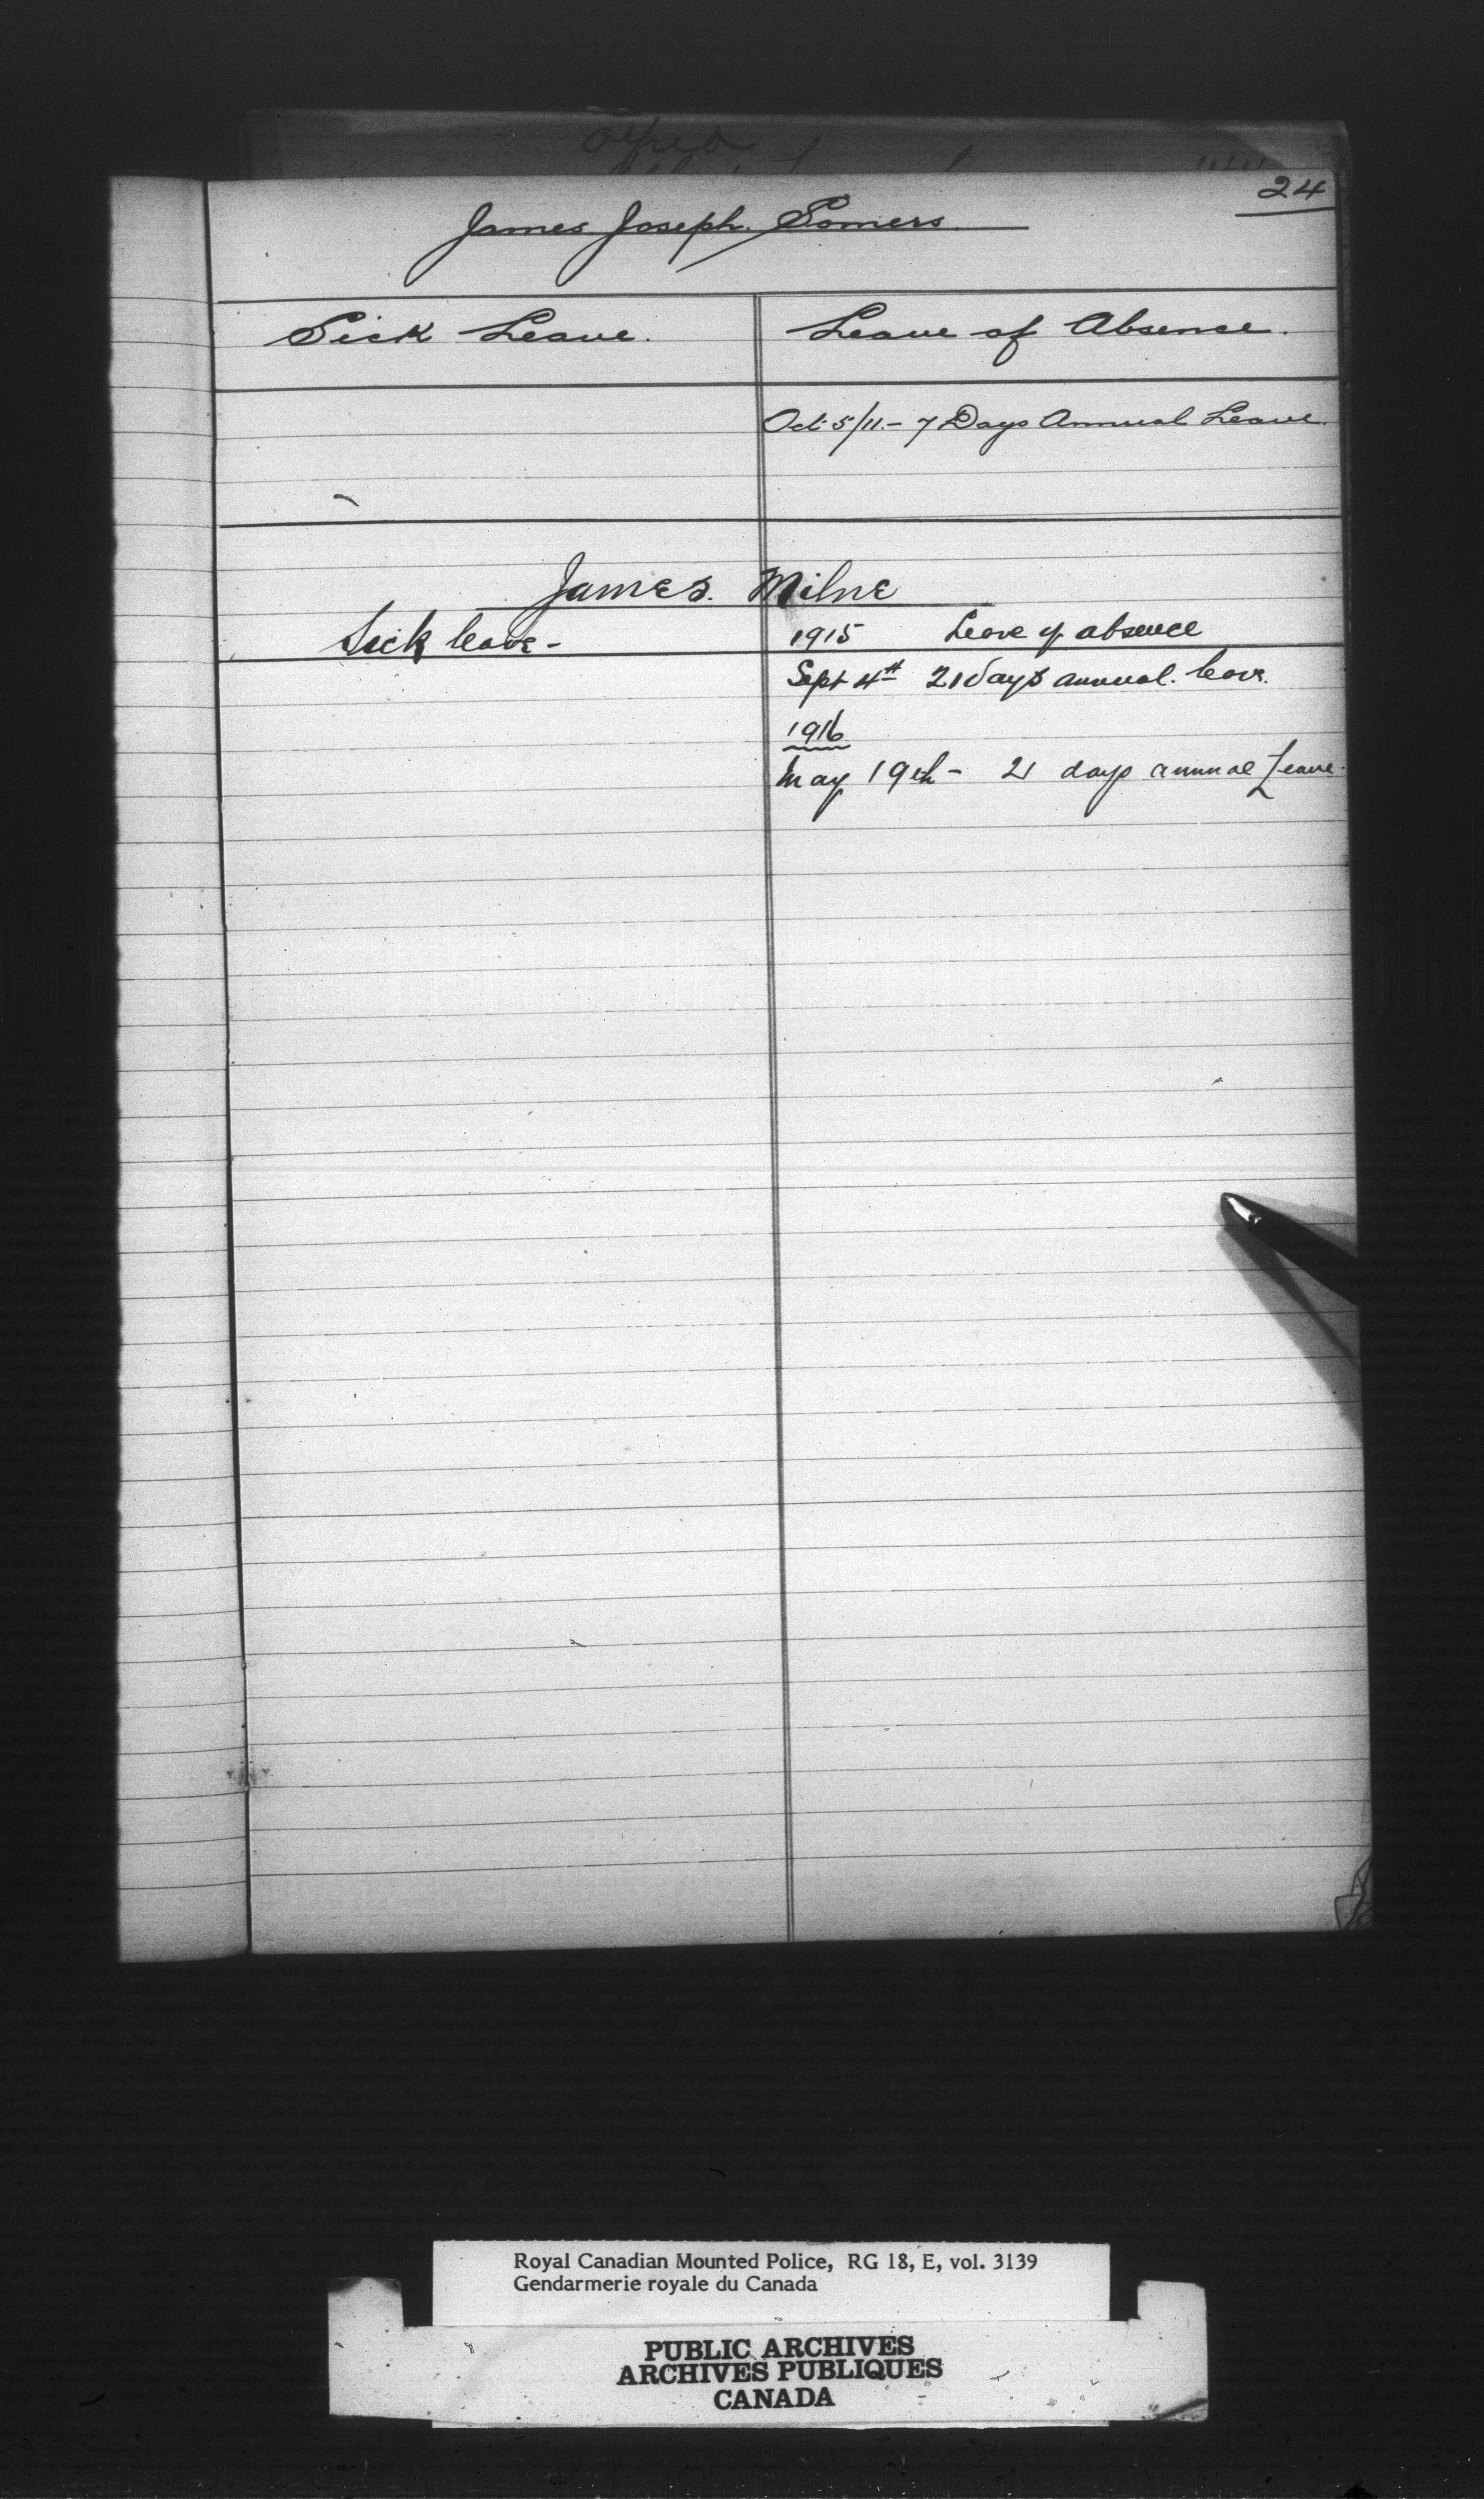 24
James Joseph Somers
Sick Leave. Leave of Absence.
Oct 5/11.- 7 Days Annual Leave.
James. Milne
Sick leave - 1915 Leave of absence
Sept 4th 21 days annual. leave.
1916
May 19th - 21 days annual Leave.
Royal Canadian Mounted Police, RG 18, E, vol. 3139
Gendarmerie royale du Canada
PUBLIC ARCHIVES
ARCHIVES PUBLIQUES
CANADA